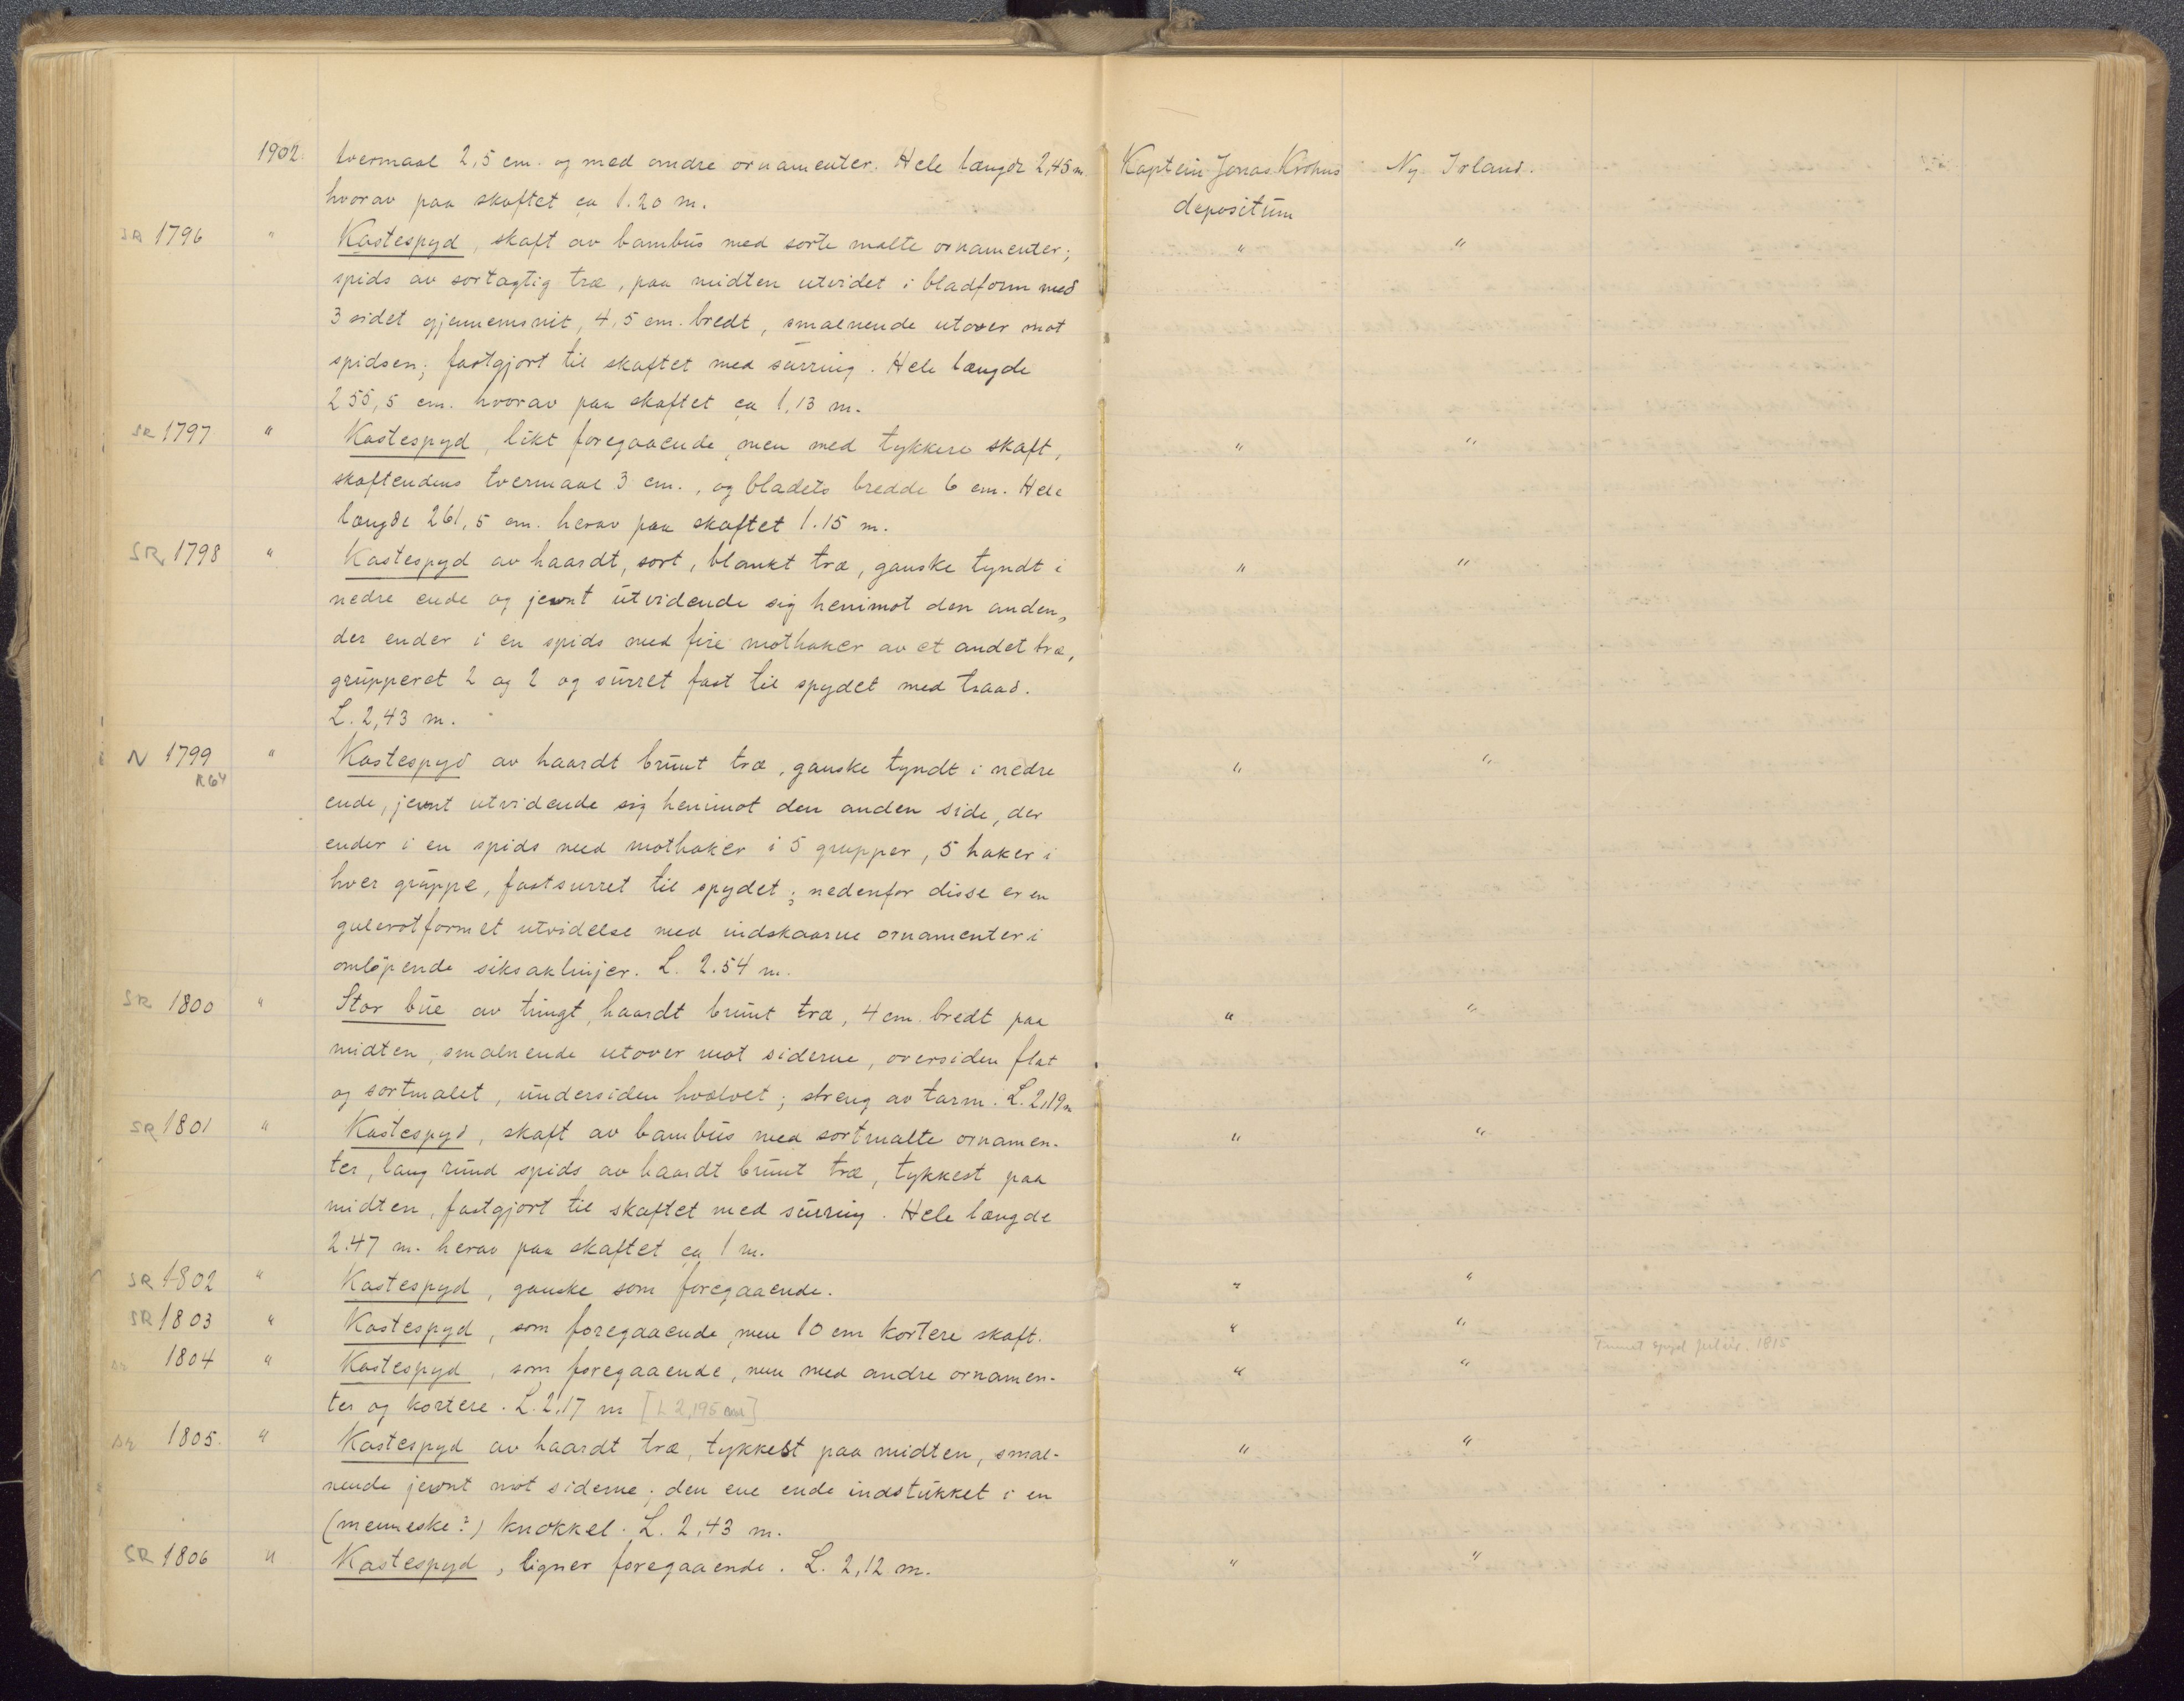 1902. tvermaal 2,5 cm. og med andre ornamenter. Hele længde 2,45 m. Kaptein Jonas Ny Irland.
hvorav paa skaftet ca 1.20 m. depositum
SR 1796 " Kastespyd, skaft av bambus med sorte malte ornamenter; " "
spids av sortagtig træ, paa midten utvidet i bladform med
3 sidet gjennemsnit, 4,5 cm. bredt, smalnende utover mot
spidsen; fastgjort til skaftet med surring. Hele længde
255,5 cm. hvorav paa skaftet ca 1,13 m.
SR 1797 " Kastespyd, likt foregaaende, men med tykkere skaft, " "
skaftendens tvermaal 3 cm., og bladets bredde 6 cm. Hele
længde 261,5 cm. herav paa skaftet 1.15 m.
SR 1798 " Kastespyd av haardt, sort, blankt træ, ganske tyndt i " "
nedre ende og jevnt utvidende sig henimot den anden,
der ender i en spids med fire mothaker av et andet træ,
grupperet 2 og 2 og surret fast til spydet med traad.
L. 2,43 m.
N 1799 " Kastespyd av haardt brunt træ, ganske tyndt i nedre " "
R64
ende, jevnt utvidende sig henimot den anden side, der
ender i en spids med mothaker i 5 grupper, 5 haker i
hver gruppe, fastsurret til spydet; nedenfor disse er en
gulerotformet utvidelse med indskaarne ornamenter i
omløpende siksaklinjer. L. 2.54 m.
SR 1800 " Stor bue av tungt, haardt brunt træ, 4 cm. bredt paa " "
midten, smalnende utover mot siderne, oversiden flat
og sortmalet, undersiden hvælvet; streng av tarm. L. 2,19 m
SR 1801 " Kastespyd, skaft av bambus med sortmalte ornamen- " "
ter, lang rund spids av haardt brunt træ, tykkest paa
midten, fastgjort til skaftet med surring. Hele længde
2.47 m. herav paa skaftet ca 1 m.
SR 1802 " Kastespyd, ganske som foregaaende. " "
SR 1803 " Kastespyd, som foregaaende, men 10 cm kortere skaft. " "
SR 1804 " Kastespyd, som foregaaende, men med andre ornamen- " " spyd 1815
ter og kortere. L. 2,17 m [L 2,195 cm]
SR 1805. " Kastespyd av haardt træ, tykkest paa midten, smal- " "
nende jevnt mot siderne; den ene ende indstukket i en
(menneske?) knokkel. L. 2,43 m.
SR 1806 " Kastespyd, ligner foregaaende. L. 2,12 m. " "